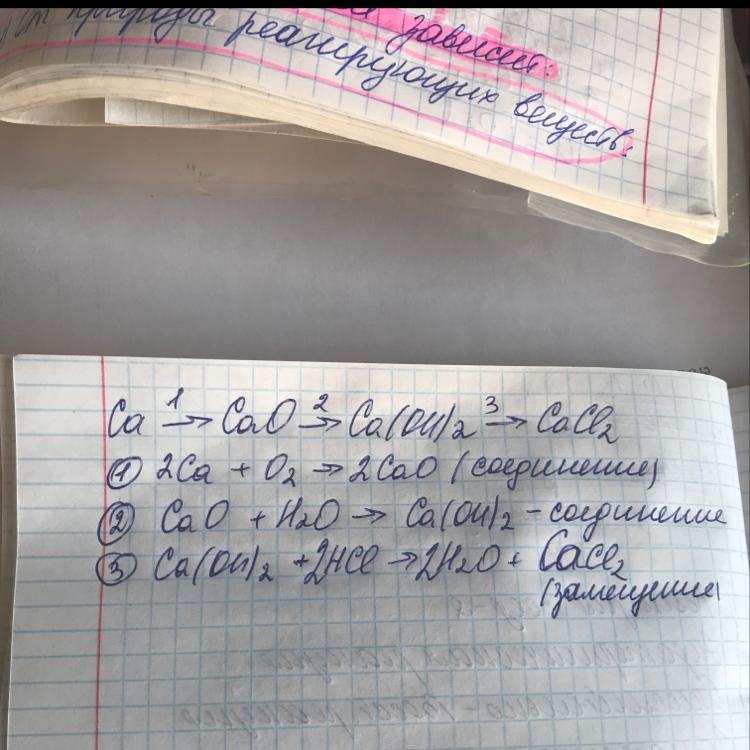 зависит:
от природы реагирующих веществ:
Ca 1→ CaO 2→ Ca(OH)2 3→ CaCl2
① 2Ca + O2 → 2CaO (соединение)
② CaO + H2O → Ca(OH)2 - соединение
③ Ca(OH)2 + 2HCl → 2H2O + CaCl2
(замещение)